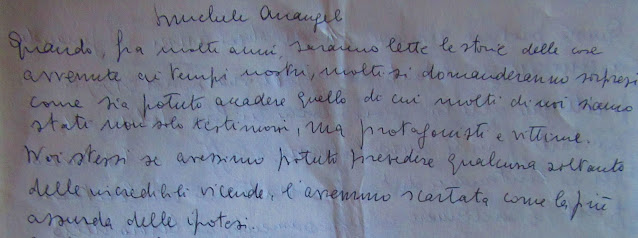 Quando, fra molti anni, saranno lette le storie delle cose
avvenute ai tempi nostri, molti si domanderanno sorpresi
come sia potuto accadere quello di cui molti di noi siamo
stati non solo testimoni, ma protagonisti e vittime.
Noi stessi se avessimo potuto prevedere qualcuna soltanto
delle incredibili vicende, l'avremmo scartata come la più
assurda delle ipotesi.